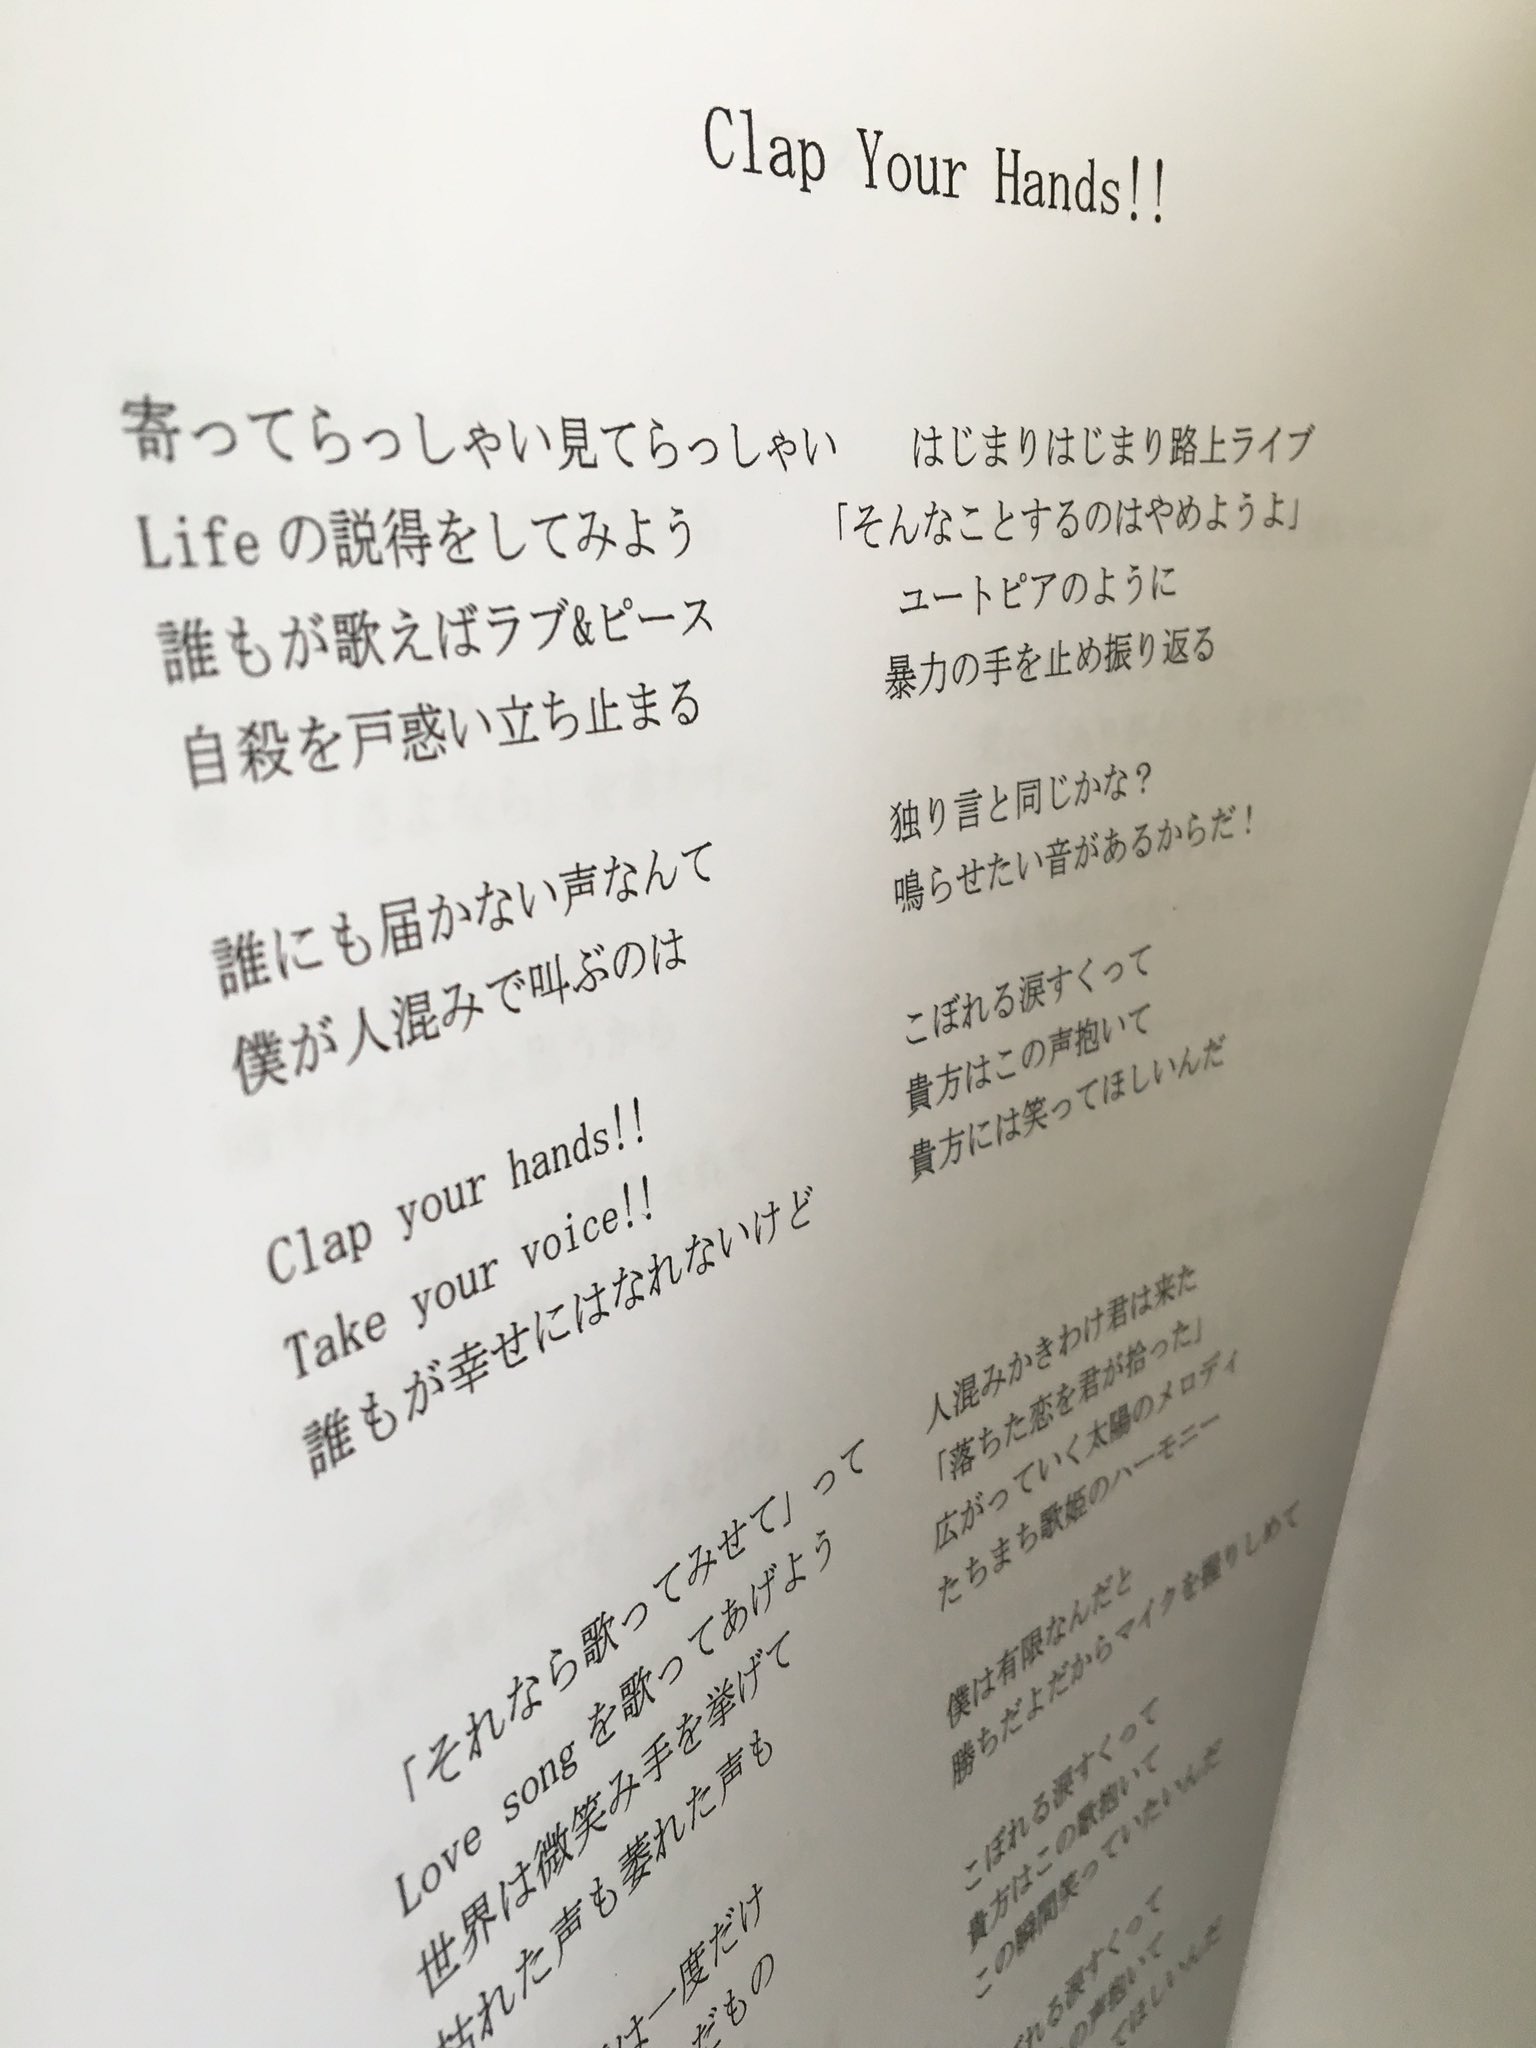 Clap Your Hands!!
寄ってらっしゃい見てらっしゃい　はじまりはじまり路上ライブ
Lifeの説得をしてみよう　「そんなことするのはやめようよ」
誰もが歌えばラブ&ピース　ユートピアのように
自殺を戸惑い立ち止まる　暴力の手を止め振り返る
誰にも届かない声なんて　独り言と同じかな？
僕が人混みで叫ぶのは　鳴らせたい音があるからだ！
Clap your hands!!　こぼれる涙すくって
Take your voice!!　貴方はこの声抱いて
誰もが幸せにはなれないけど　貴方には笑ってほしいんだ
「それなら歌ってみせて」って　人混みかきわけ君は来た
Love songを歌ってあげよう　「落ちた恋を君が拾った」
世界は微笑み手を挙げて　広がっていく太陽のメロディ
枯れた声も萎れた声も　たちまち歌姫のハーモニー
は一度だけ　僕は有限なんだと
だもの　勝ちだよだからマイクを握りしめて
こぼれる涙すくって
貴方はこの歌抱いて
この瞬間笑っていたいんだ
れる涙すくって
の声抱いて
てほしいんだ